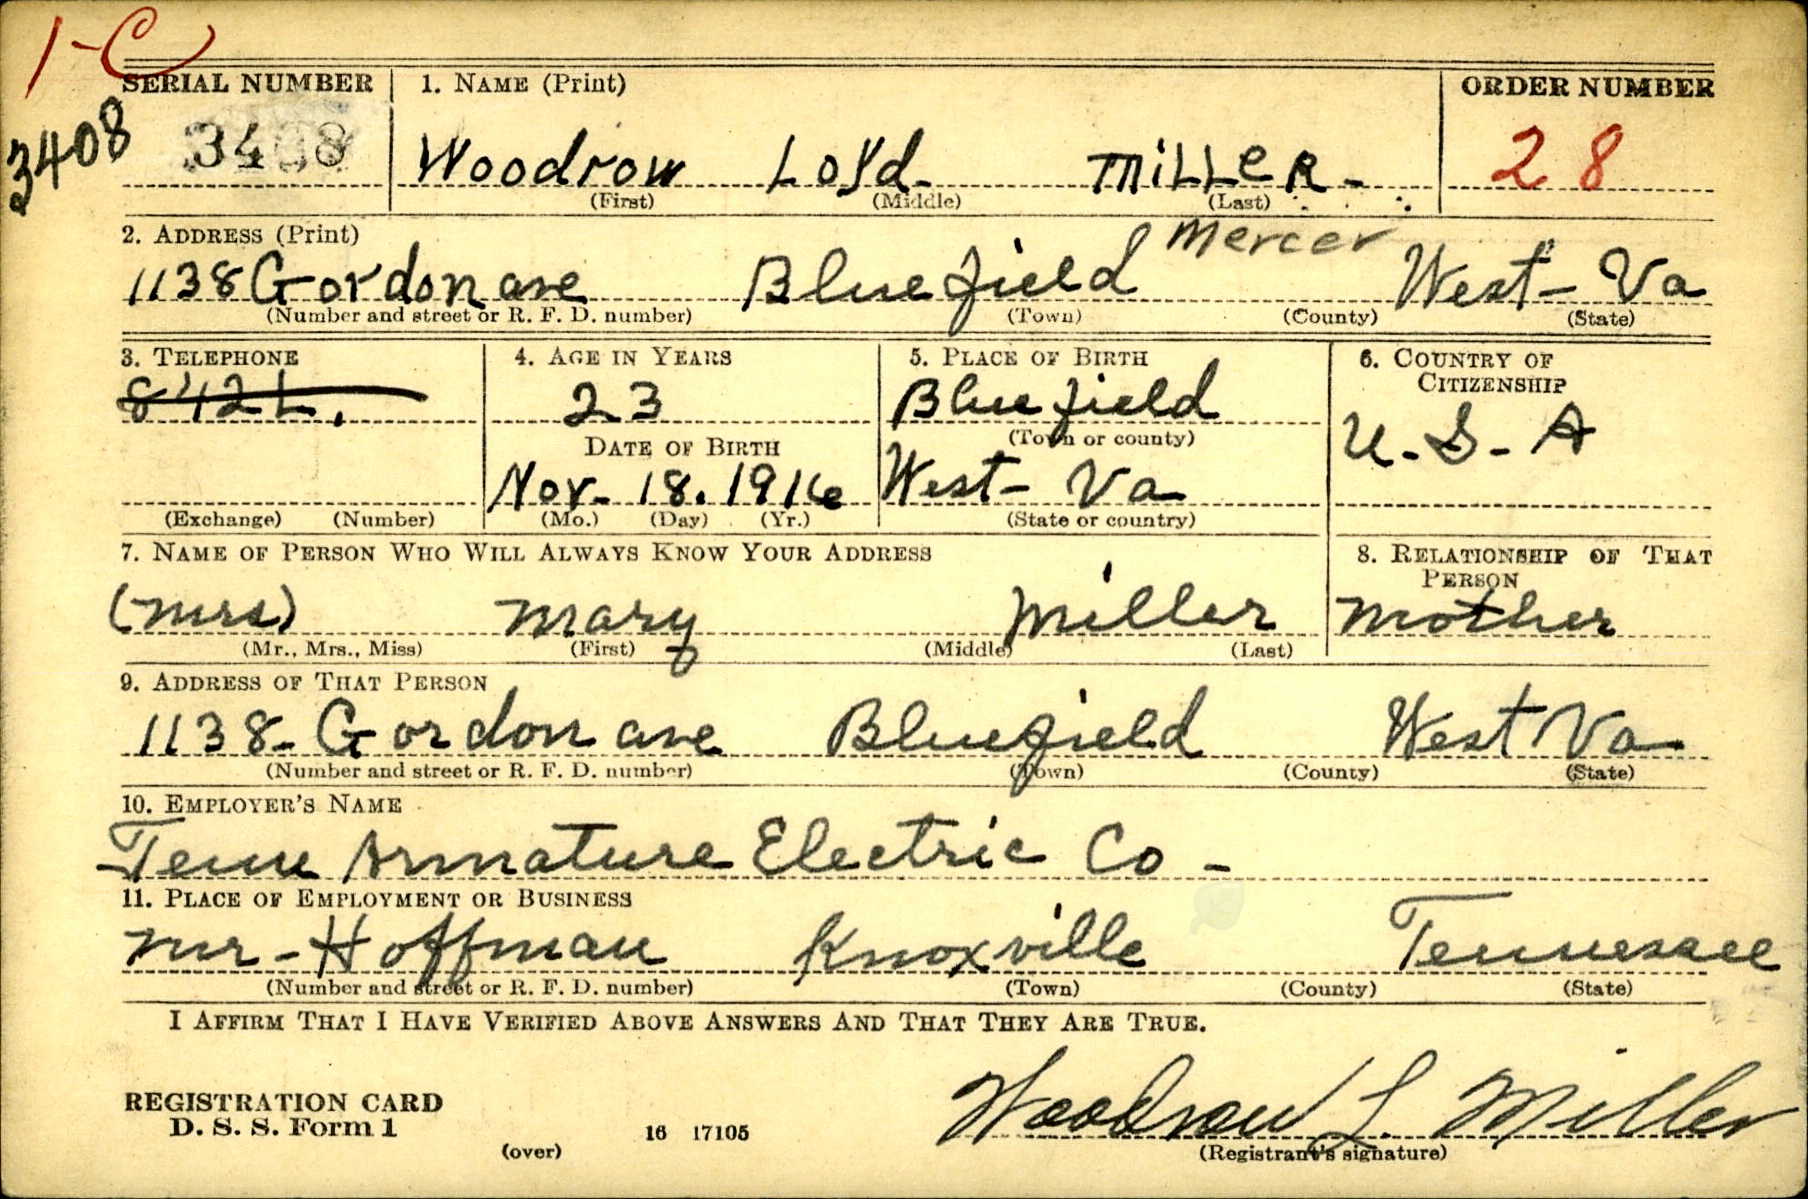 1-C
SERIAL NUMBER 1. NAME (Print) ORDER NUMBER
3408 3408 Woodrow Loyd MiLLeR 28
(First) (Middle) (Last)
2. ADDRESS (Print) Mercer
1138 Gordon ave Bluefield West-Va
(Number and street or R. F. D. number) (Town) (County) (State)
3. TELEPHONE 4. AGE IN YEARS 5. PLACE OF BIRTH 6. COUNTRY OF CITIZENSHIP
842L. 23 Bluefield U.S.A
DATE OF BIRTH (Town or county)
Nov- 18. 1916 West- Va
(Exchange) (Number) (Mo.) (Day) (Yr.) (State or country)
7. NAME OF PERSON WHO WILL ALWAYS KNOW YOUR ADDRESS 8. RELATIONSHIP OF THAT PERSON
(Mrs) Mary Miller Mother
(Mr., Mrs., Miss) (First) (Middle) (Last)
9. ADDRESS OF THAT PERSON
1138- Gordon ave Bluefield West Va
(Number and street or R. F. D. number) (Town) (County) (State)
10. EMPLOYER'S NAME
Tenn Armature Electric Co -
11. PLACE OF EMPLOYMENT OR BUSINESS
Mr - Hoffman Knoxville Tennessee
(Number and street or R. F. D. number) (Town) (County) (State)
I AFFIRM THAT I HAVE VERIFIED ABOVE ANSWERS AND THAT THEY ARE TRUE.
REGISTRATION CARD
D. S. S. Form 1 Woodrow L. Miller
(over) 16 17105 (Registrant's signature)